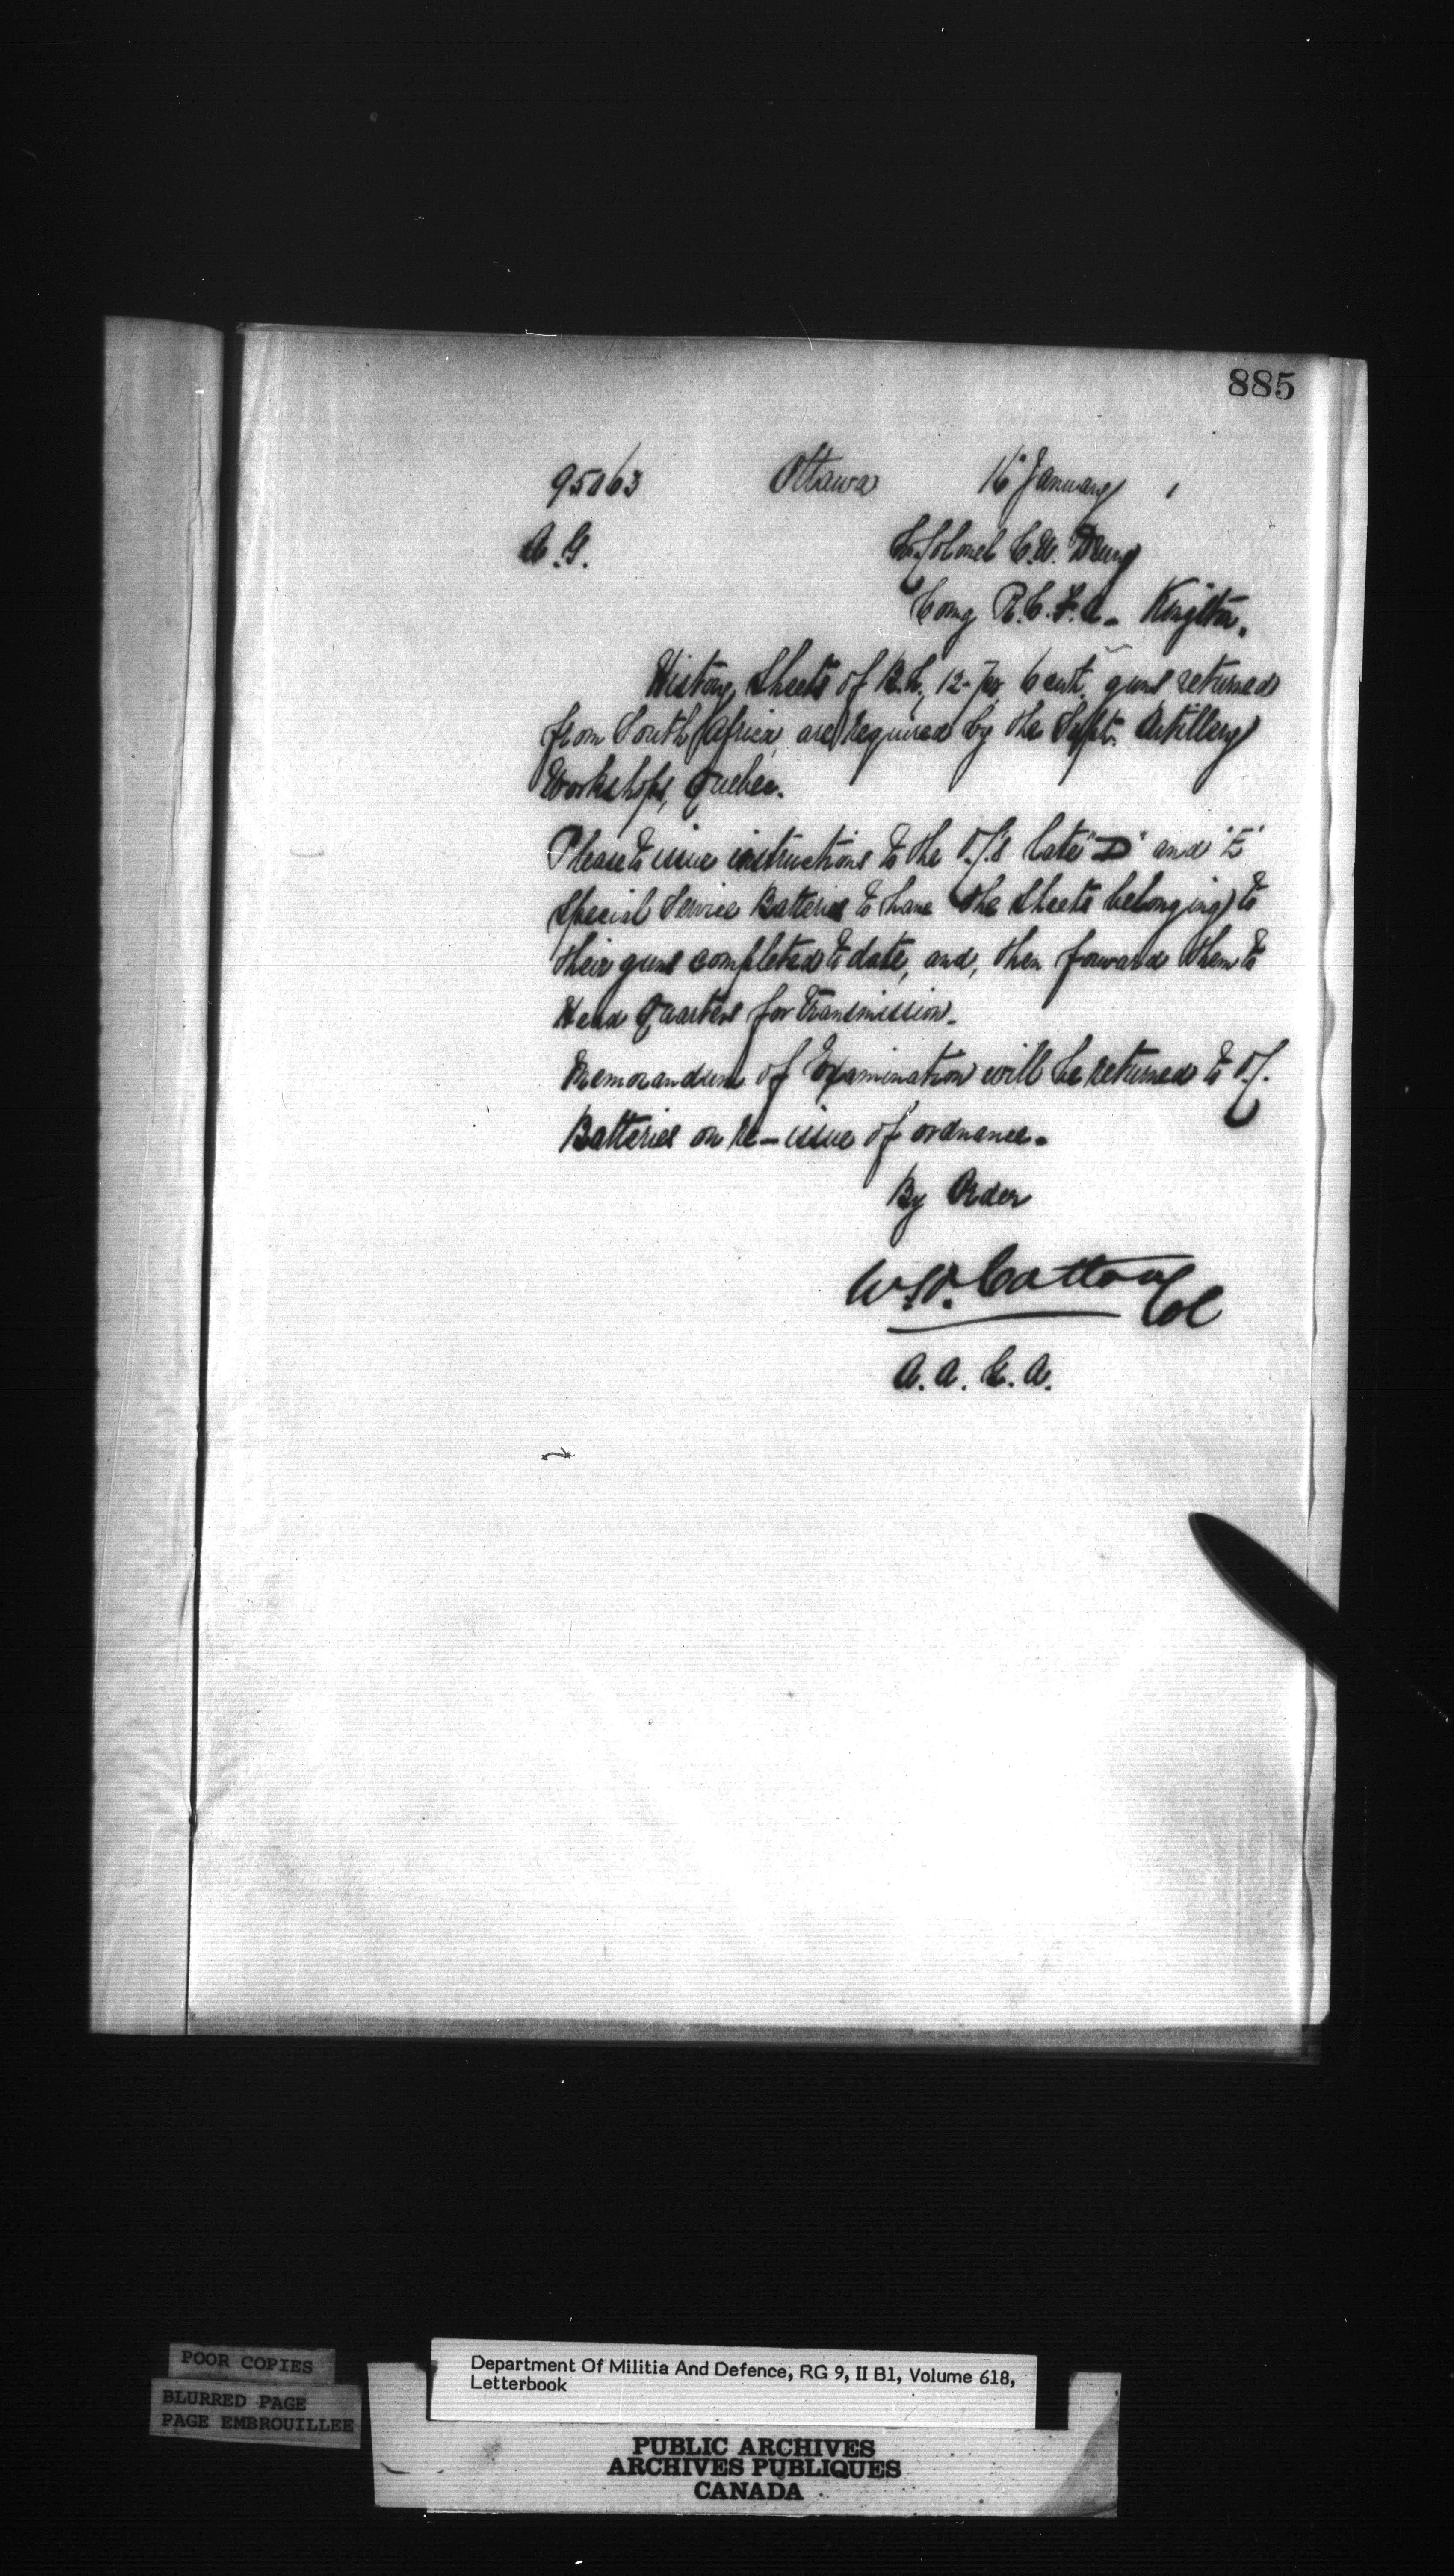 885
95063 Ottawa 16 January 1
A.G. Lt. Colonel C.W. Drury
Comg R.C.F.A. - Kingston.
History Sheets of B.L., 12-Pr, 6 cwt. guns returned
from South Africa, are required by the Supt. Artillery
Workshops, Quebec.
Please to issue instructions to the O.C's late "D" and "E"
Special Service Batteries to have the sheets belonging to
their guns completed to date, and, then forward them to
Head Quarters for transmission.
Memorandum of Examination will be returned to O.C.
Batteries on re-issue of ordnance.
By Order
Cotton Col
A.A.G.A.
POOR COPIES
BLURRED PAGE
PAGE EMBROUILLEE
Department Of Militia And Defence, RG 9, II B1, Volume 618,
Letterbook
PUBLIC ARCHIVES
ARCHIVES PUBLIQUES
CANADA